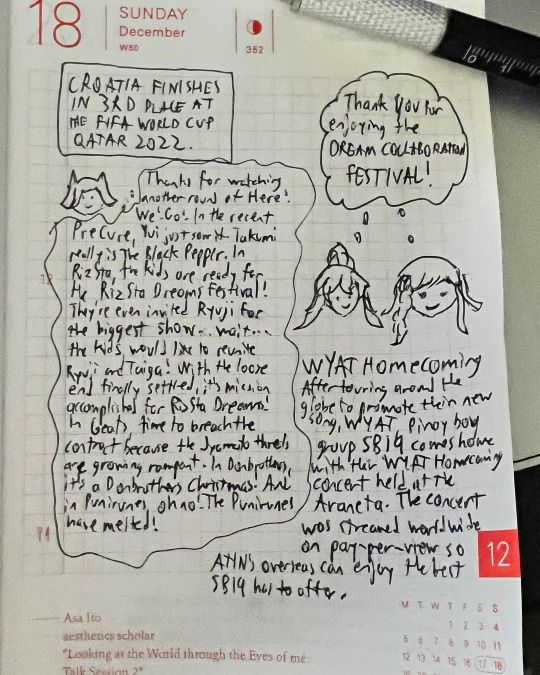 18
SUNDAY
December
W50
352
CROATIA FINISHES
IN 3RD PLACE AT
THE FIFA WORLD CUP
QATAR 2022.
Thank You for
enjoying the
DREAM COLLABORATION
FESTIVAL!
Thanks for watching
another round of Here
We Go! In the recent
PreCure, Yui just saw it Takumi
really is The Black Pepper. In
RizSta, the kids are ready for
the RizSta Dreams Festival!
They're even invited Ryuji for
the biggest show... wait...
the kids would like to reunite
Ryuji and Taiga! With the loose
end finally settled, it's mission
accomplished for RizSta Dreams!
In Geats, time to breach the
contract because the Jyamato threats
are growing rampant. In Donbrothers,
it's a Donbrothers Christmas! And
in Punirunes, oh no! The Punirunes
have melted!
WYAT Homecoming
After touring around the
globe to promote their new
song, WYAT, Pinoy boy
group SB19 comes home
with their WYAT Homecoming
concert held at the
Araneta. The concert
was streamed worldwide
on pay-per-view so
ATINS overseas can enjoy the best
SB19 has to offer.
12
Asa Ito
aesthetics scholar
"Looking at the World through the Eyes of me
Talk Session 2"
M T W T F S S
1 2 3 4
5 6 7 8 9 10 11
12 13 14 15 16 17 18